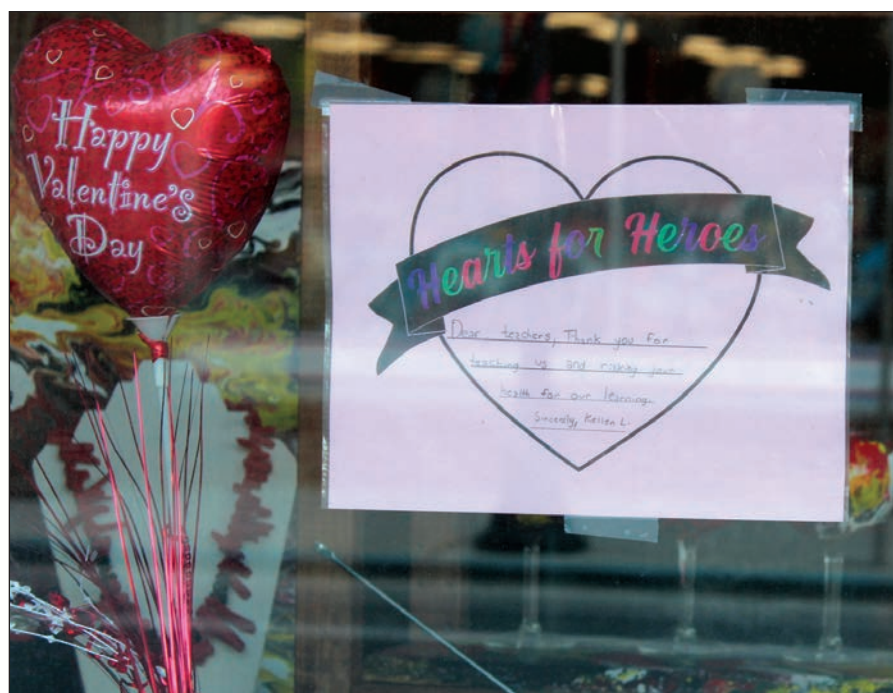 Happy
Valentine's
Day
Hearts for Heroes
Dear teachers, Thank you for
teaching us and risking your
health for our learning.
Sincerely, Kellen L.